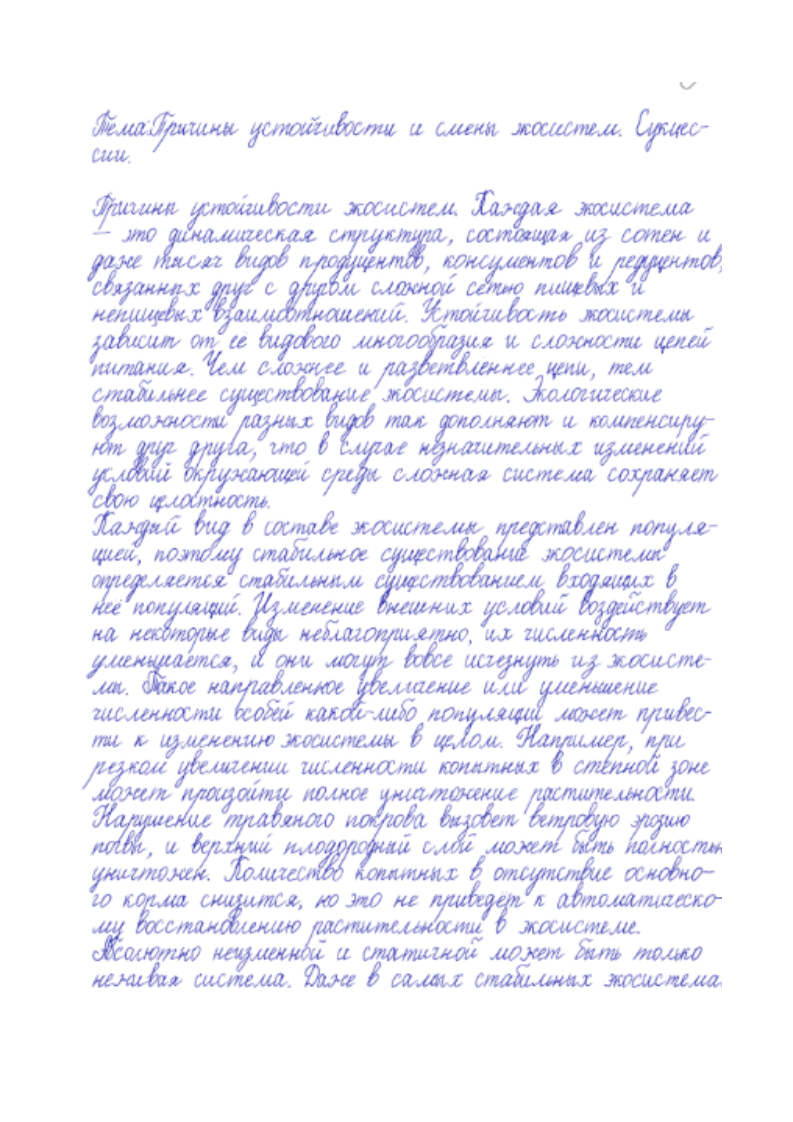 Тема:Причины устойчивости и смены экосистем. Сукцес-
сии.
Причины устойчивости экосистем. Каждая экосистема
— это динамическая структура, состоящая из сотен и
даже тысяч видов продуцентов, консументов и редуцентов,
связанных друг с другом сложной сетью пищевых и
непищевых взаимоотношений. Устойчивость экосистемы
зависит от её видового многообразия и сложности цепей
питания. Чем сложнее и разветвленнее цепи, тем
стабильнее существование экосистемы. Экологические
возможности разных видов так дополняют и компенсиру-
ют друг друга, что в случае незначительных изменений
условий окружающей среды сложная система сохраняет
свою целостность.
Каждый вид в составе экосистемы представлен популя-
цией, поэтому стабильное существование экосистемы
определяется стабильным существованием входящих в
неё популяций. Изменение внешних условий воздействует
на некоторые виды неблагоприятно, их численность
уменьшается, и они могут вовсе исчезнуть из экосисте-
мы. Такое направленное увеличение или уменьшение
численности особей какой-либо популяции может привес-
ти к изменению экосистемы в целом. Например, при
резком увеличении численности копытных в степной зоне
может произойти полное уничтожение растительности.
Нарушение травяного покрова вызовет ветровую эрозию
почвы, и верхний плодородный слой может быть полностью
уничтожен. Количество копытных в отсутствие основно-
го корма снизится, но это не приведёт к автоматическо-
му восстановлению растительности в экосистеме.
Абсолютно неизменной и статичной может быть только
неживая система. Даже в самых стабильных экосистема